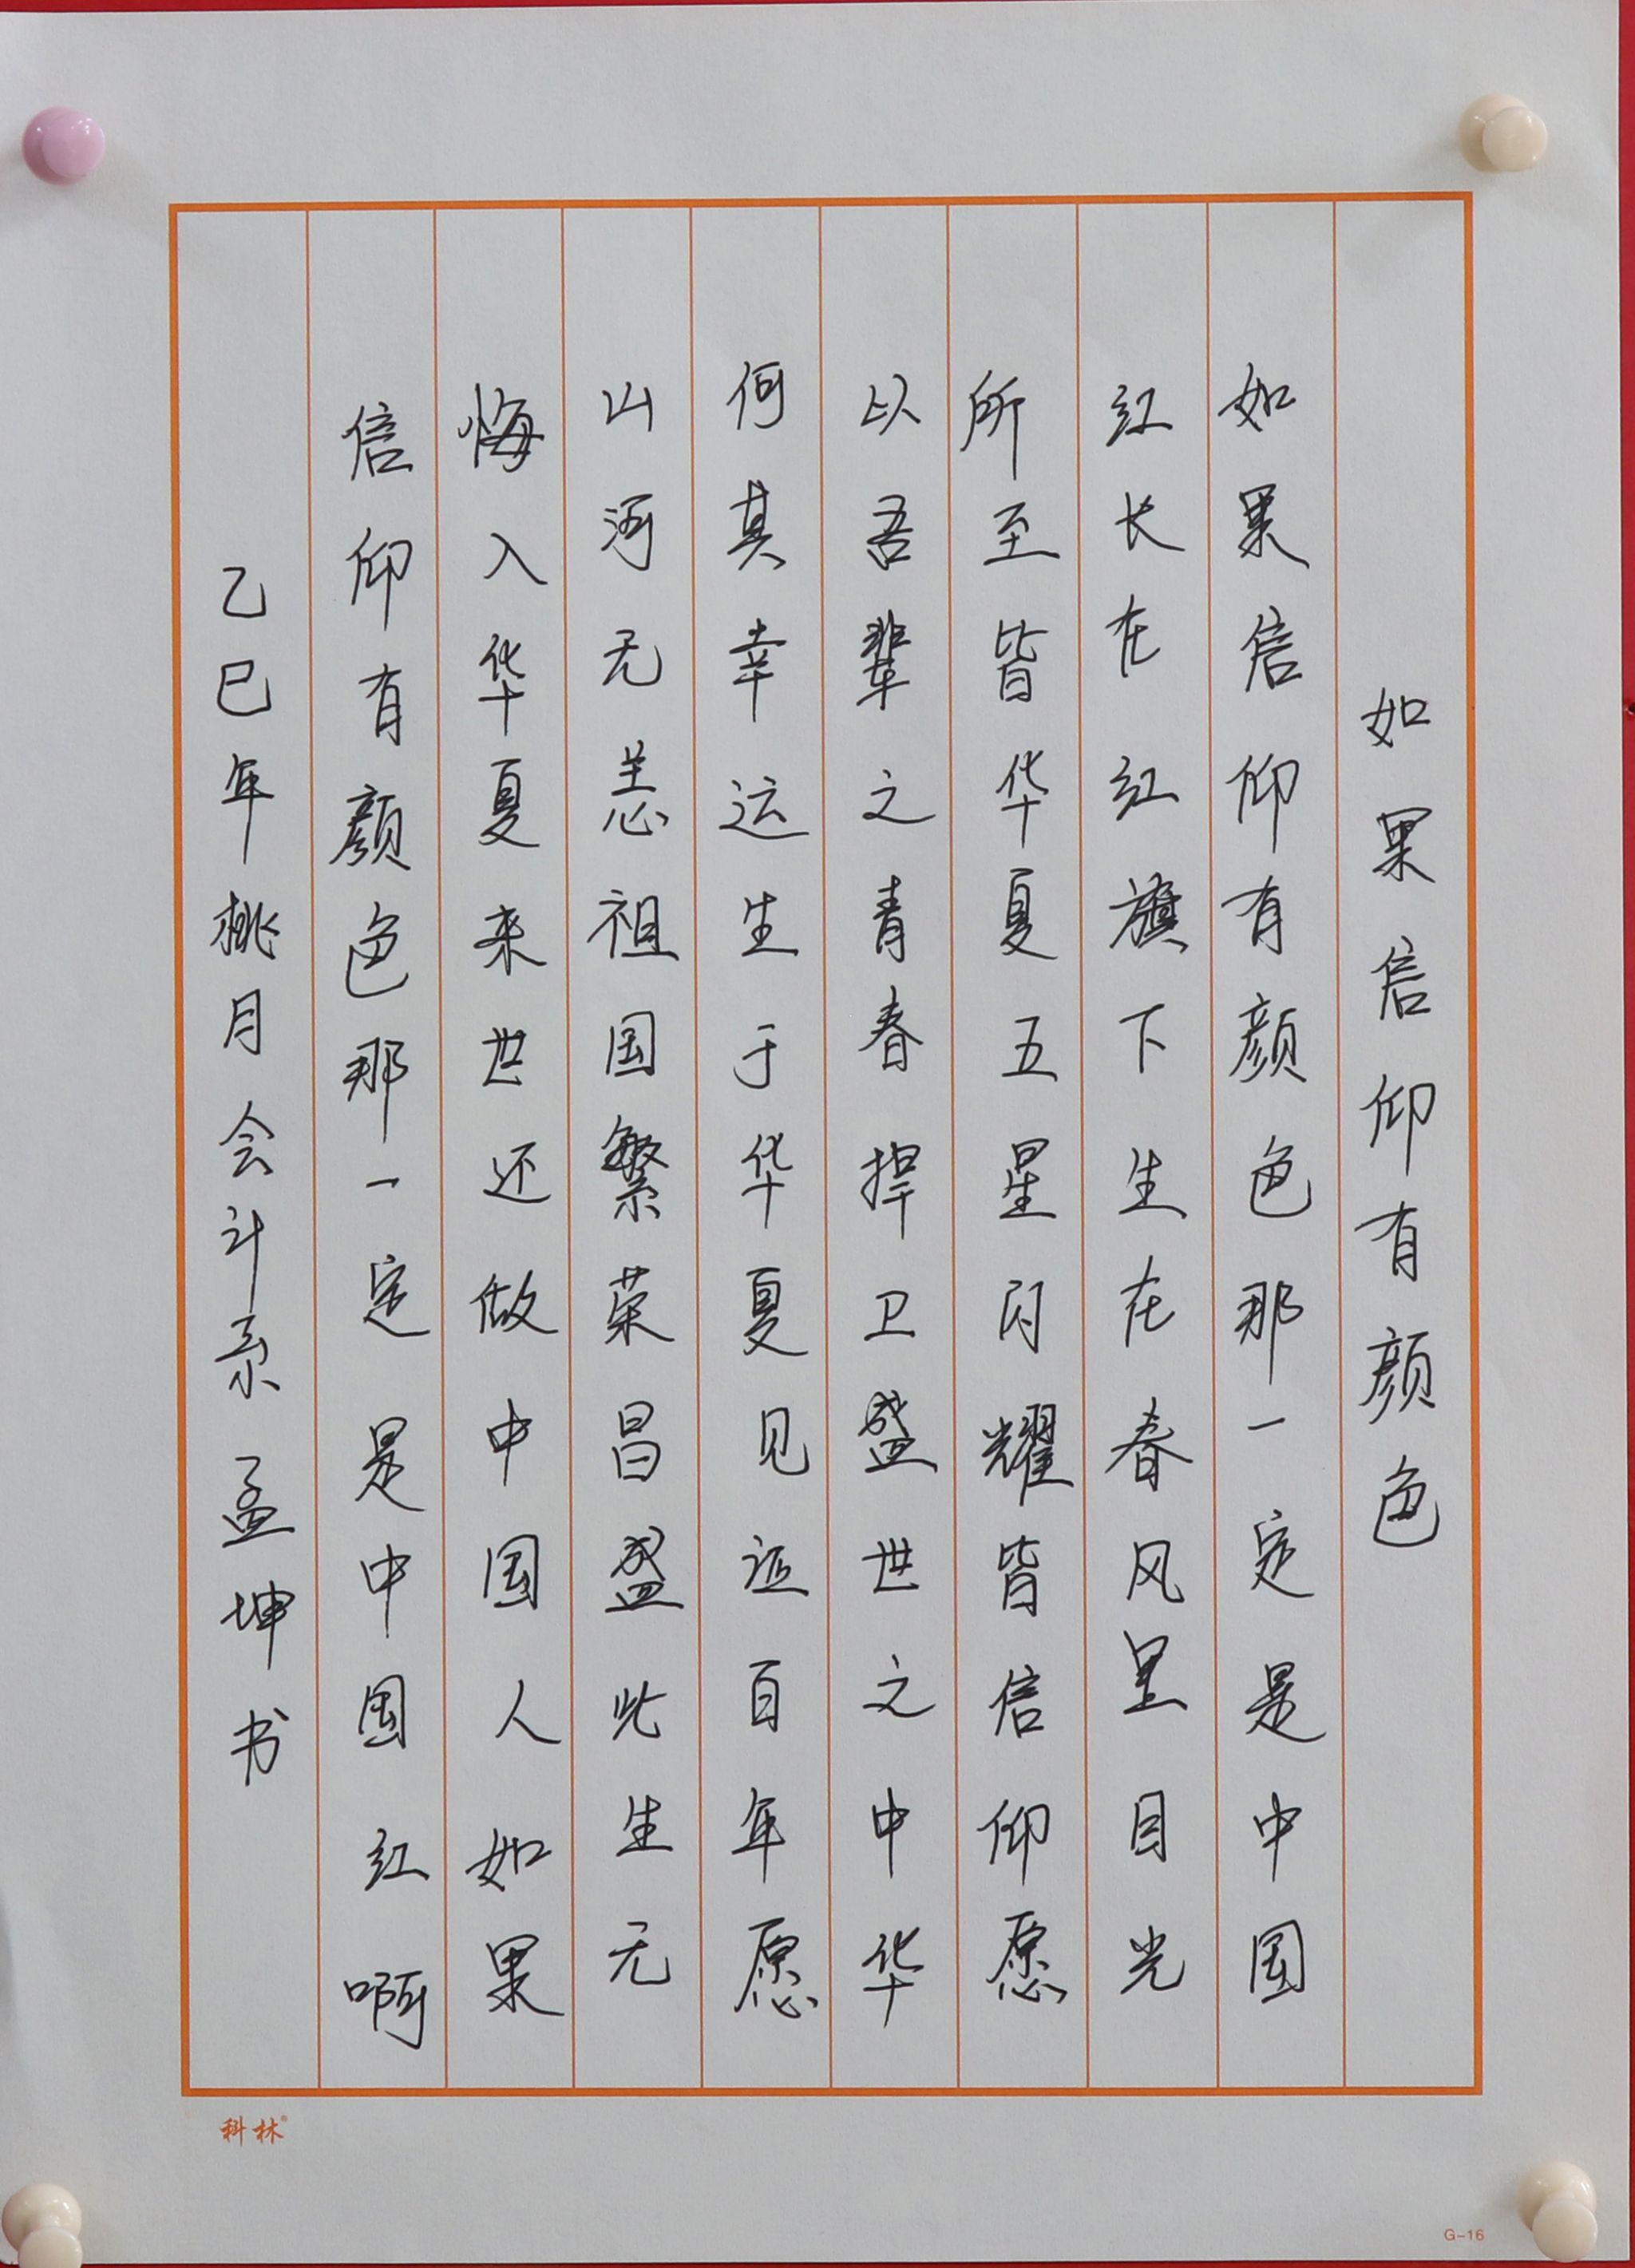 如果信仰有颜色
如果信仰有颜色那一定是中国
红长在红旗下生在春风里目光
所至皆华夏五星闪耀皆信仰愿
以吾辈之青春捍卫盛世之中华
何其幸运生于华夏见证百年愿
山河无恙祖国繁荣昌盛此生无
悔入华夏来世还做中国人如果
信仰有颜色那一定是中国红啊
乙巳年桃月会计系孟坤书
科林®
G-16